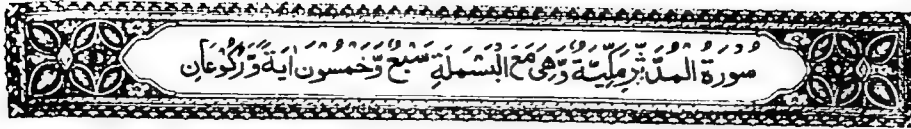 سُوْرَةُ الْمُدَّثِّرِ مَكِّيَّةٌ وَّهِيَ مَعَ الْبَسْمَلَةِ سَبْعٌ وَّخَمْسُوْنَ اٰيَةً وَّرُكُوْعَانِ